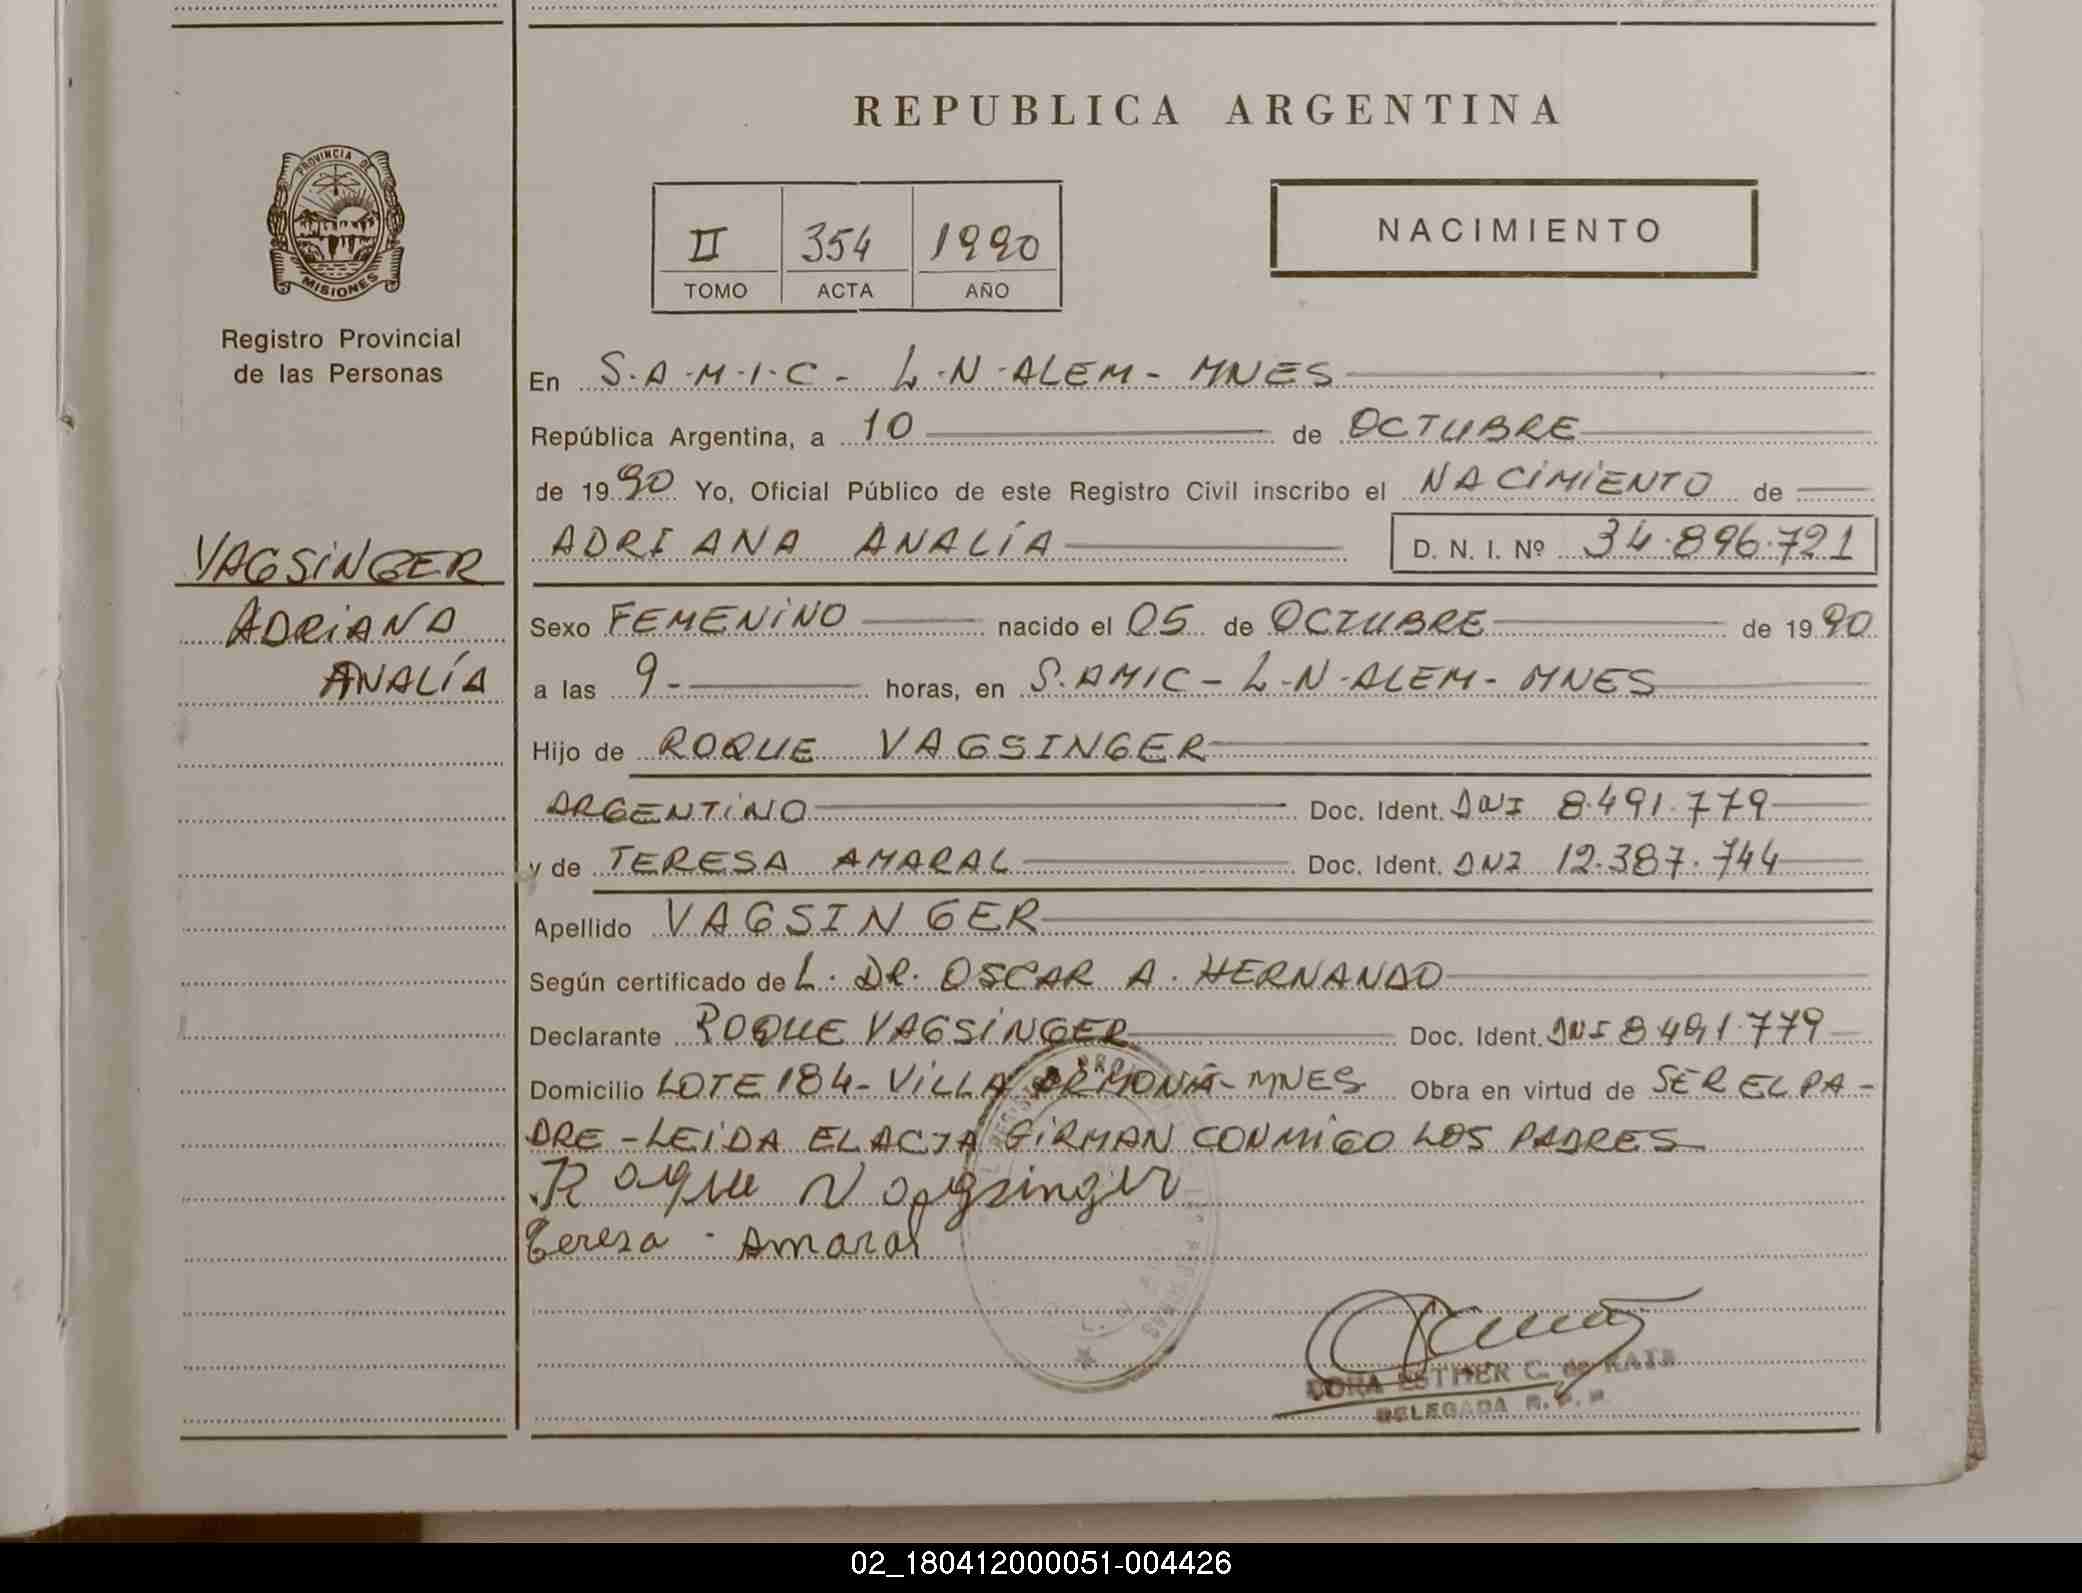 REPUBLICA ARGENTINA
PROVINCIA DE
MISIONES
Registro Provincial
de las Personas
II 354 1990
TOMO ACTA AÑO
NACIMIENTO
En S.A.M.I.C- L.N.ALEM- MNES
República Argentina, a 10 de OCTUBRE
de 1990 Yo, Oficial Público de este Registro Civil inscribo el NACIMIENTO de
ADRIANA ANALÍA D. N. I. Nº 34.896.721
VAGSINGER
ADRIANA
ANALÍA
Sexo FEMENINO nacido el 05 de OCTUBRE de 1990
a las 9- horas, en S.AMIC- L-N-ALEM- MNES
Hijo de ROQUE VAGSINGER
ARGENTINO Doc. Ident. DNI 8.491.779
y de TERESA AMARAL Doc. Ident. DNI 12.387.744
Apellido VAGSINGER
Según certificado de L. DR. OSCAR A. HERNANDO
Declarante ROQUE VAGSINGER Doc. Ident. DNI 8491.779
Domicilio LOTE 184- VILLA ARMONÍA- MNES Obra en virtud de SER EL PA-
DRE -LEIDA EL ACTA FIRMAN CONMIGO LOS PADRES
Roque Vagsinger
Teresa - Amaral
DORA ESTHER C. de
DELEGADA R. P. P.
02_180412000051-004426